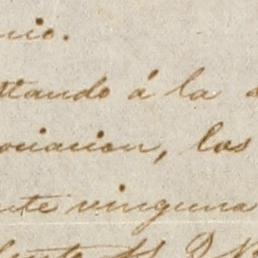 nio.
stando á la
ociacion, los
nte ninguna